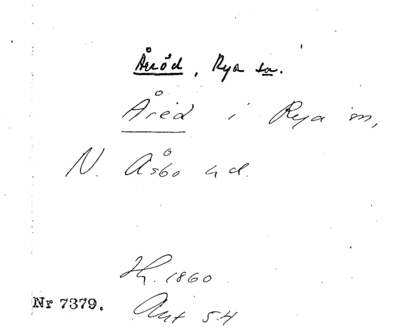 Åröd, Rya sn.
Åröd i Rya sn,
N. Åsbo hd.
Hg. 1860
Nr 7379.
Ant 54